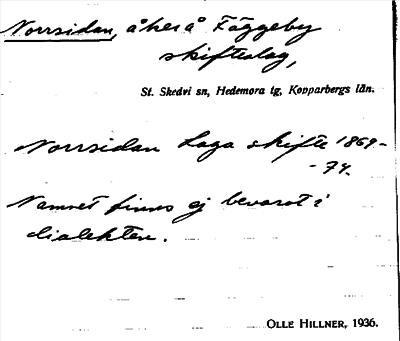 Norrsidan, åker å Fäggeby
skifteslag,
St. Skedvi sn, Hedemora tg, Kopparbergs län.
Norrsidan Laga skifte 1869-
-74.
Namnet finns ej bevarat i
dialekten.
OLLE HILLNER, 1936.